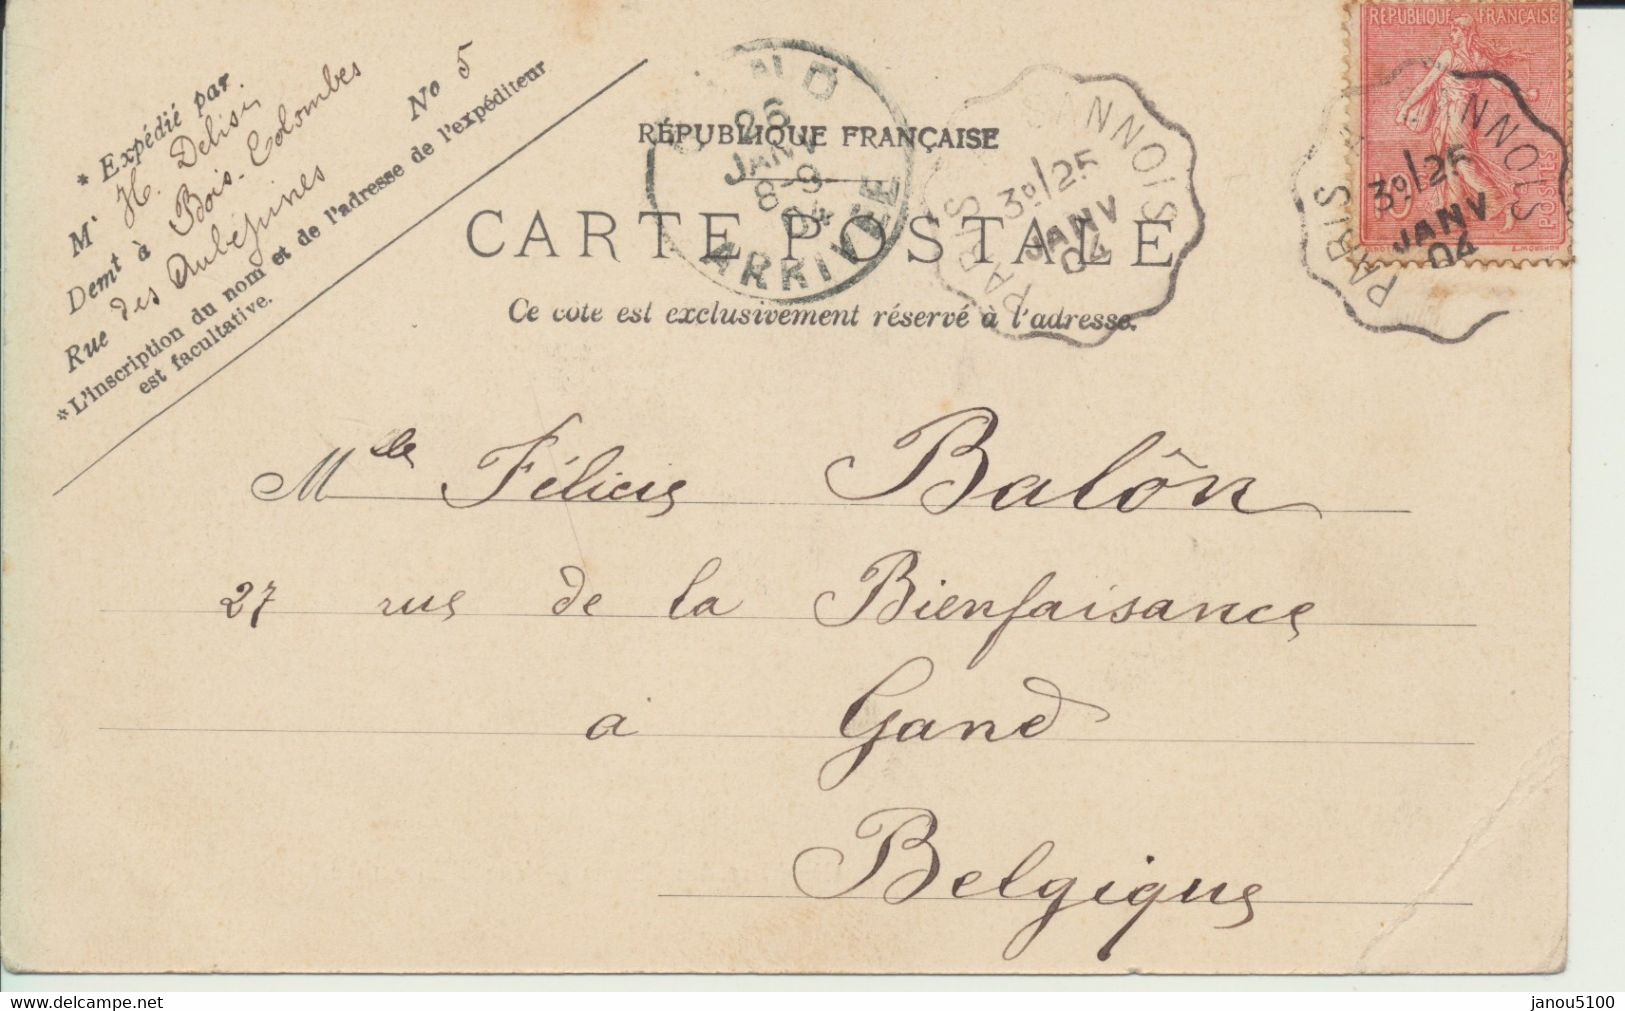 * Expédié par
Mʳ H. Delisi
Demᵗ à Bois-Colombes
Rue des Aubépines No 5
*L'inscription du nom et de l'adresse de l'expéditeur
est facultative.
RÉPUBLIQUE FRANÇAISE
CARTE POSTALE
Ce côté est exclusivement réservé à l'adresse.
26
JANV
8-9
04
ARRIVÉE
PARIS ANNOIS
3º/25
JANV
04
REPUBLIQUE FRANÇAISE
POSTES
PARIS A ANNOIS
3º/25
JANV
04
Mlle Félicie Balôn
27 rue de la Bienfaisance
à Gand
Belgique
janou5100